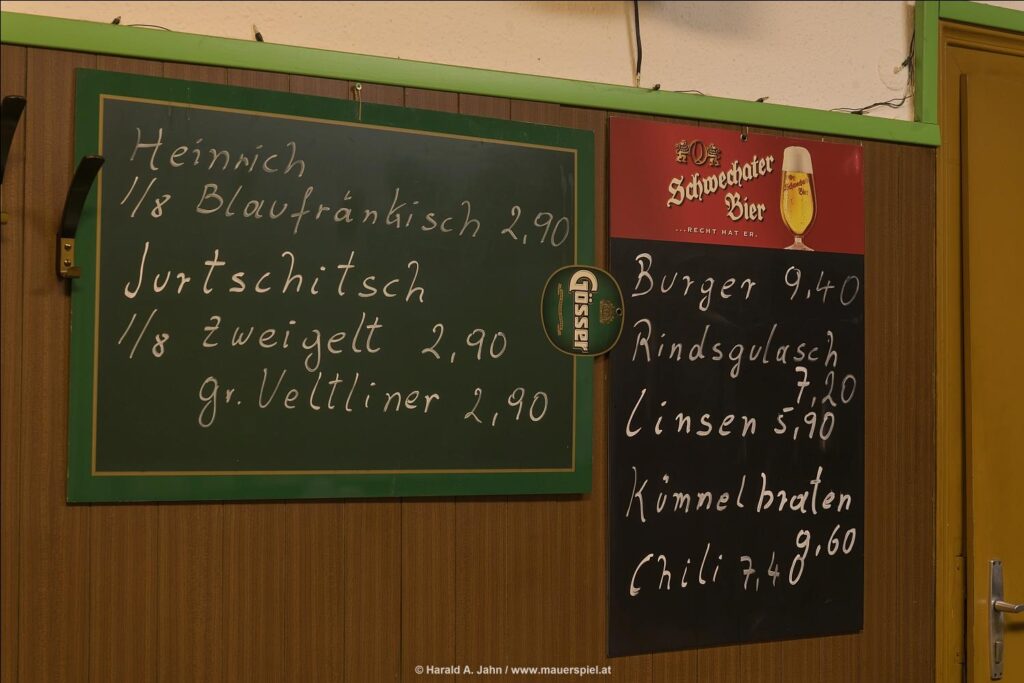 Heinrich
1/8 Blaufränkisch 2,90
Jurtschitsch
1/8 Zweigelt 2,90
gr. Veltliner 2,90
Gösser
Schwechater
Bier
...RECHT HAT ER.
Burger 9,40
Rindsgulasch
7,20
Linsen 5,90
Kümmelbraten
9.60
Chili 7,40
© Harald A. Jahn / www.mauerspiel.at